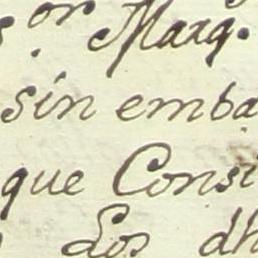 s.or Marq.
sin emba
que Consi
Los dh